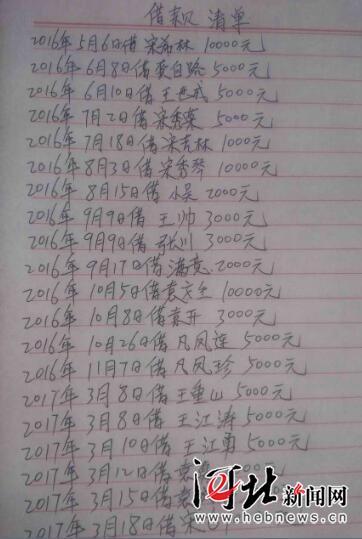 借款 清单
2016年5月6日借宋希林10000元
2016年6月8日借 白 5000元
2016年6月10日借王 5000元
2016年7月2日借宋秀荣5000元
2016年7月18日借宋吉林1000元
2016年8月3日借宋秀琴10000元
2016年8月15日借小吴2000元
2016年9月9日借王帅3000元
2016年9月9日借张川3000元
2016年9月17日借满意2000元
2016年10月5日借袁 10000元
2016年10月8日借袁开3000元
2016年10月26日借凡凤莲5000元
2016年11月7日借凡凤珍5000元
2017年3月8日借王重山5000元
2017年3月8日借王江涛5000元
2017年3月10日借王江勇5000元
2017年3月12日借袁
2017年3月15日借袁
2017年3月18日借宋
河北新闻网
www.hebnews.cn